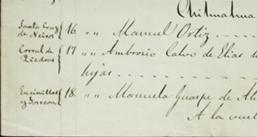 Chilmalma
Santa Cruz de Niños 16 „ „ Manuel Ortiz
Corral de Piedras 17 „ „ Ambrosio Calvo de Elias de
hijas
Encinillas y Torreon 18. „ „ Manuela Guaspe de Al
A la vuel